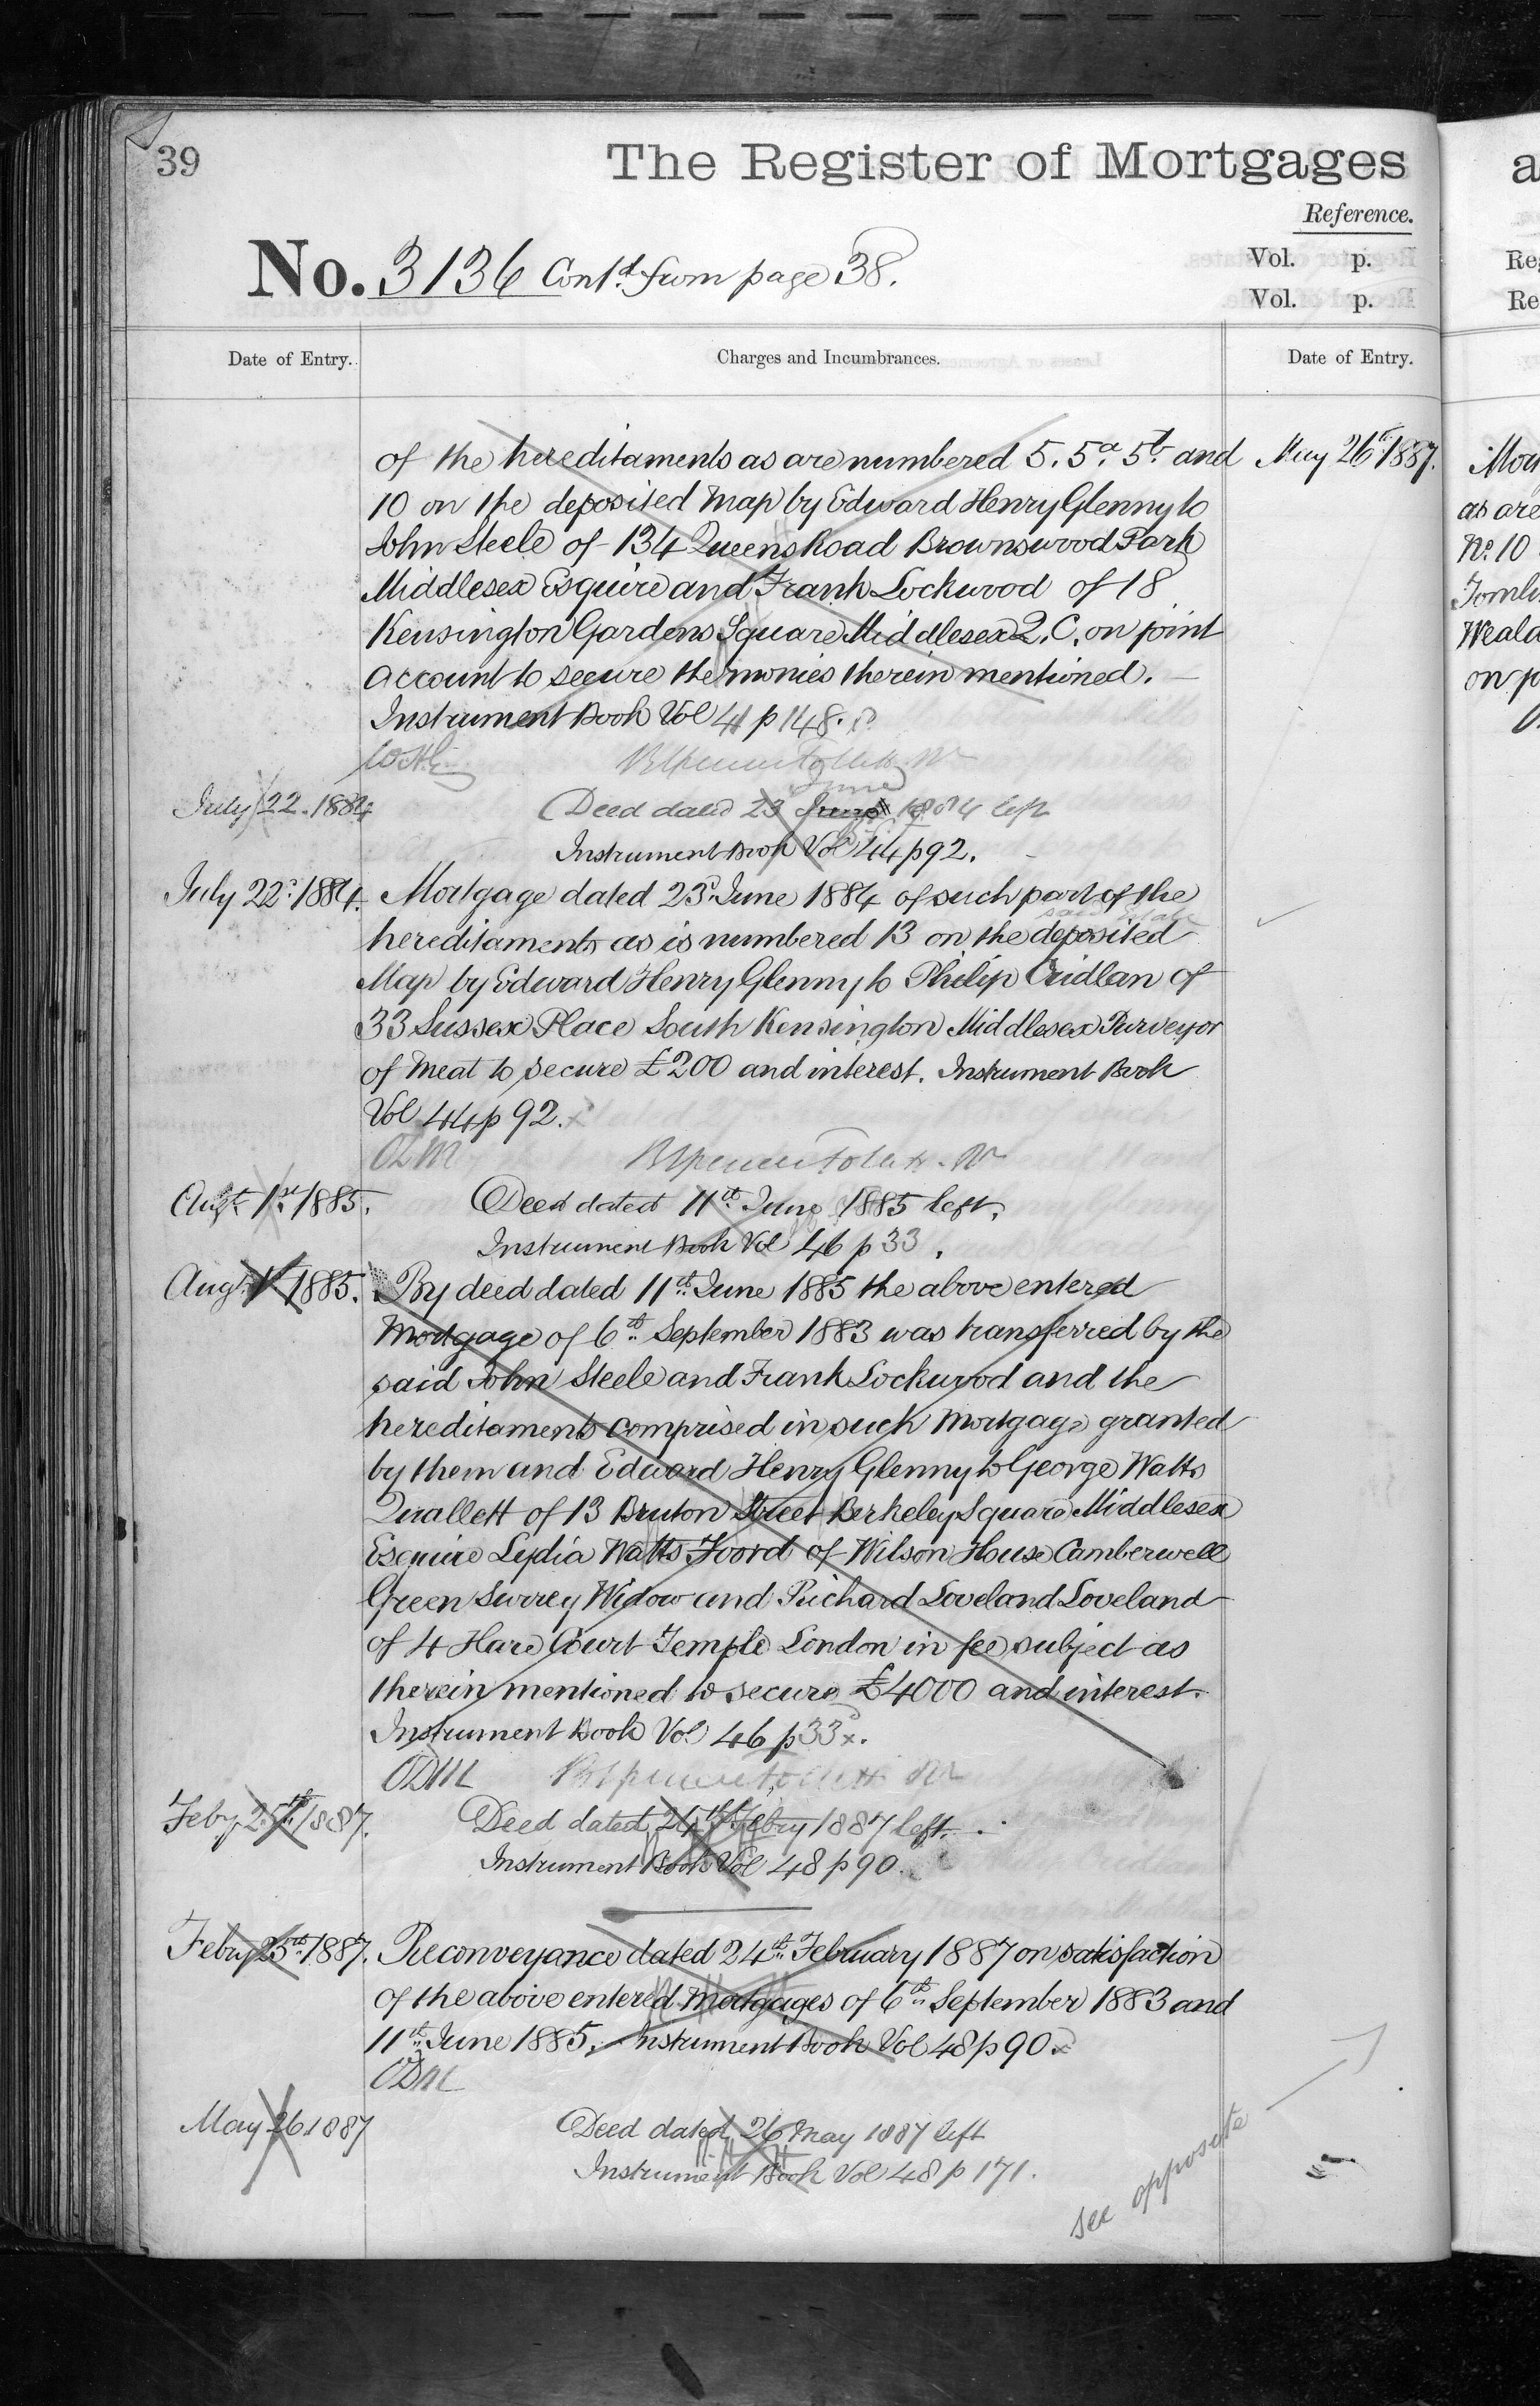 39
The Register of Mortgages
Reference.
No. 3136 Contd. from page 38.
Vol. p.
Vol. p.
Date of Entry.
Charges and Incumbrances.
Date of Entry.
of the hereditaments as are numbered 5. 5a. 5b. and
10 on the deposited Map by Edward Henry Glenny to
John Steele of 134 Queens Road Brownswood Park
Middlesex Esquire and Frank Lockwood of 18
Kensington Gardens Square Middlesex Q.C. on joint
account to secure the monies therein mentioned.
Instrument Book Vol 41 p 148.
July 22. 1884
Deed dated 23 June 1884 left
Instrument Book Vol 44 p 92.
July 22d. 1884.
Mortgage dated 23d. June 1884 of such part of the
hereditaments as is numbered 13 on the deposited
Map by Edward Henry Glenny to Philip Cridlan of
33 Sussex Place South Kensington Middlesex Purveyor
of Meat to secure £200 and interest. Instrument Book
Vol 44 p 92.
Augt. 1st 1885.
Deed dated 11th. June 1885 left.
Instrument Book Vol 46 p 33.
Augt. 1st 1885.
By deed dated 11th. June 1885 the above entered
Mortgage of 6th. September 1883 was transferred by the
said John Steele and Frank Lockwood and the
hereditaments comprised in such Mortgage granted
by them and Edward Henry Glenny to George Watts
Quallett of 13 Bruton Street Berkeley Square Middlesex
Esquire Lydia Watts Foord of Wilson House Camberwell
Green Surrey Widow and Richard Loveland Loveland
of 4 Hare Court Temple London in fee subject as
therein mentioned to secure £4000 and interest.
Instrument Book Vol 46 p 33 x.
ODM
Feby 25th. 1887.
Deed dated 24th Febry 1887 left.
Instrument Book Vol 48 p 90.
Feby 25th. 1887.
Reconveyance dated 24th. February 1887 on satisfaction
of the above entered Mortgages of 6th. September 1883 and
11th. June 1885. Instrument Book Vol 48 p 90.
ODM
May 26 1887
Deed dated 26 May 1887 left
Instrument Book Vol 48 p 171.
see opposite
May 26th. 1887.
a
Re
Re
as are
No. 10
on p